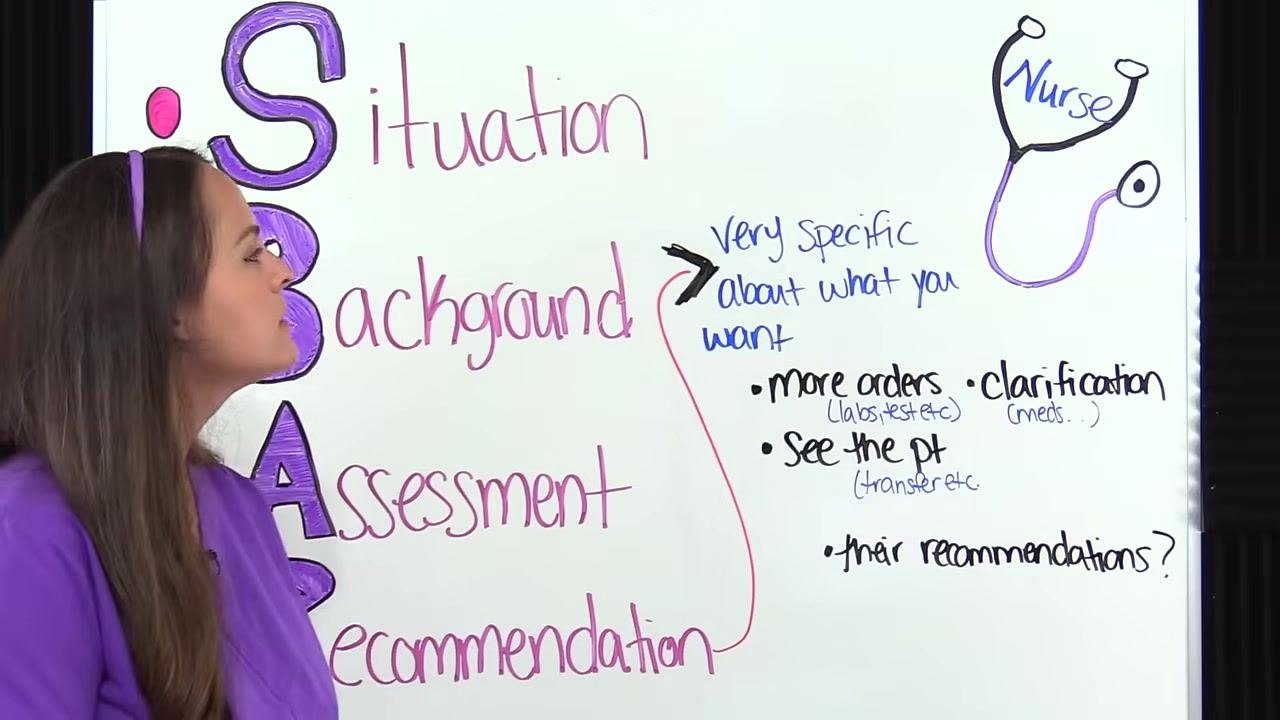 Situation
Background
Assessment
Recommendation
Nurse
Very specific
about what you
want
• more orders • clarification
(labs, test etc) (meds...)
• See the pt
(transfer etc.
• their recommendations?